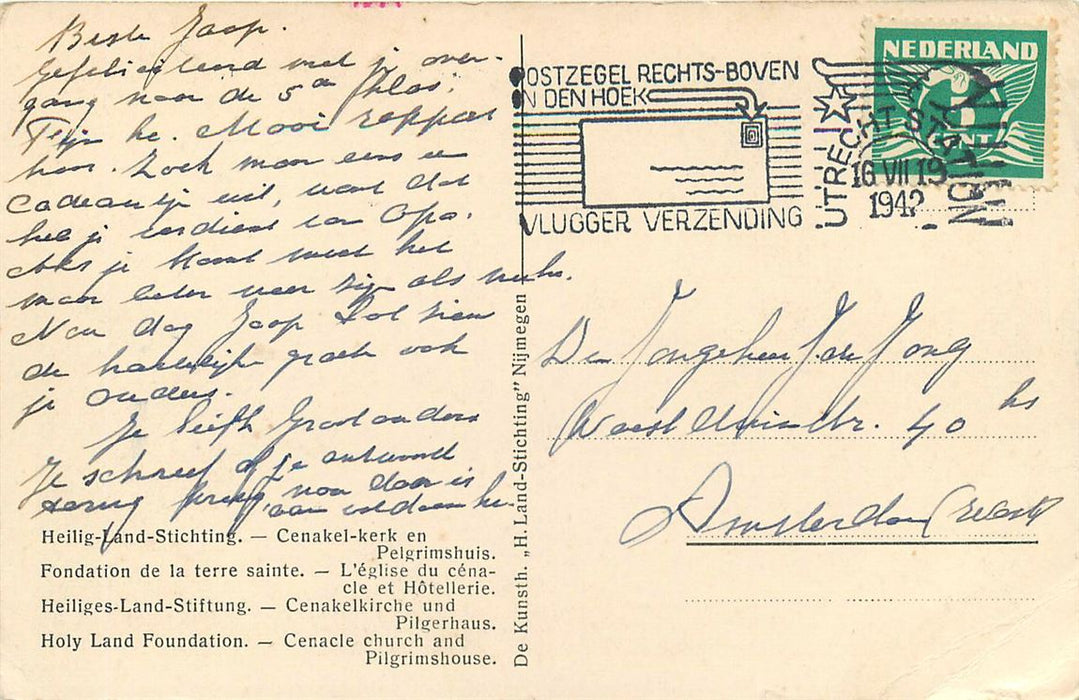 Beste Jaap.
Gefeliciteerd met je over-
gang naar de 5de Klas.
Fijn he. Mooi rapport
hoor. Zoek maar eens een
cadeautje uit, want dat
heb je verdiend van Opa.
Als je komt moet het
maar beter weer zijn als nu hs.
Nou dag Jaap tot ziens
de hartelijke groeten ook
je ouders.
Je liefh Grootouders
Je schreef of je antwoord
terug kreeg, nou daar is
aan voldaan he.
Heilig-Land-Stichting. — Cenakel-kerk en
Pelgrimshuis.
Fondation de la terre sainte. — L'église du céna-
cle et Hôtellerie.
Heiliges-Land-Stiftung. — Cenakelkirche und
Pilgerhaus.
Holy Land Foundation. — Cenacle church and
Pilgrimshouse.
De Kunsth. „H. Land-Stichting" Nijmegen
POSTZEGEL RECHTS-BOVEN
IN DEN HOEK
VLUGGER VERZENDING
UTRECHT STATION
16 VII 19
1942
NEDERLAND
CENT
Den Jongeheer J. de Jong
40 hs
Amsterdam (West)